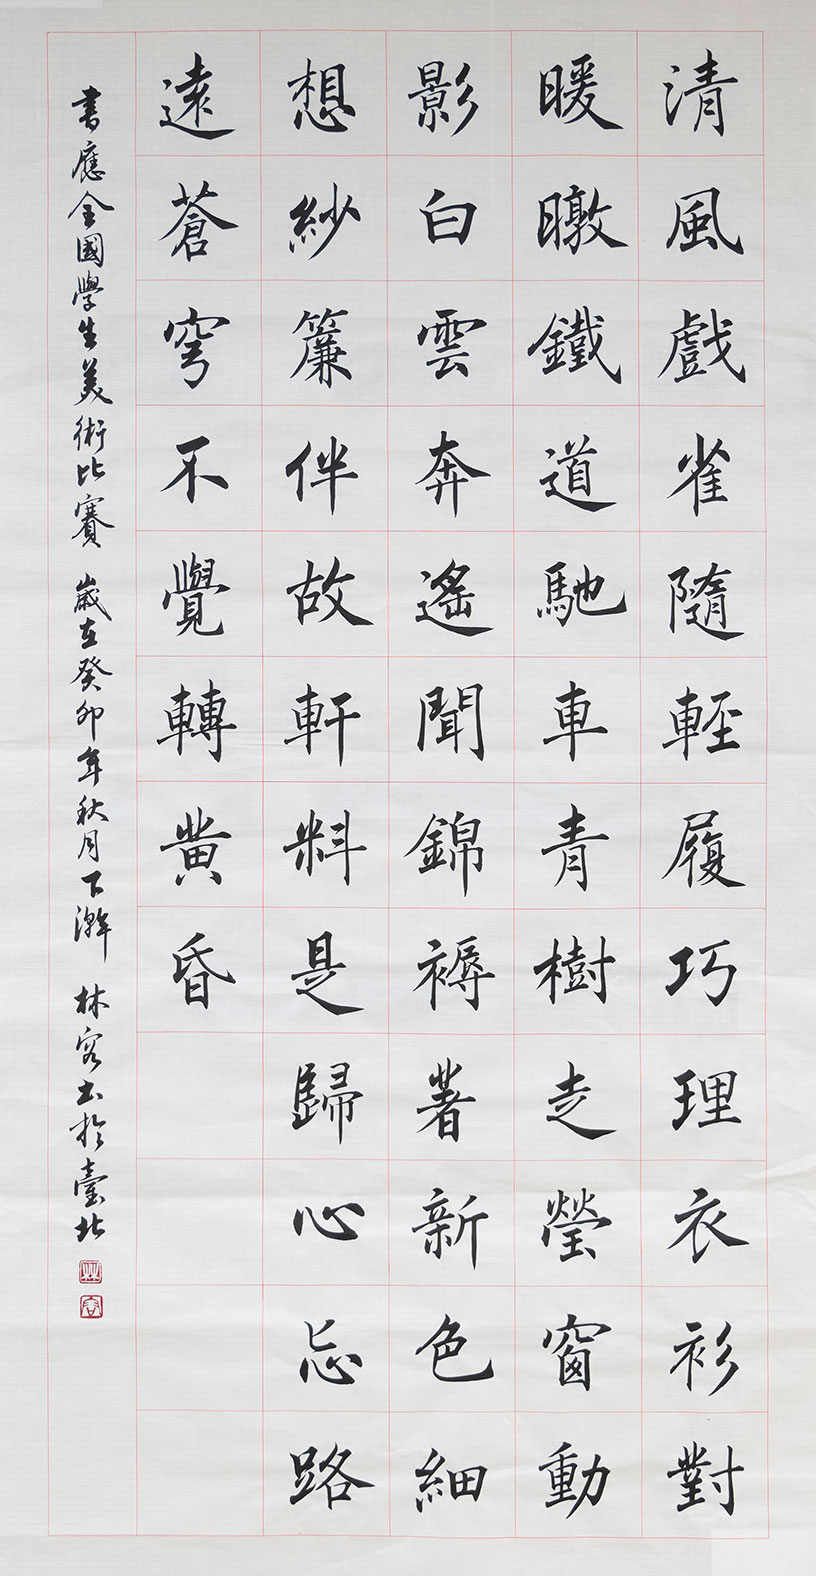 清風戲雀隨輕履巧理衣衫對
暖暾鐵道馳車青樹走瑩窗動
影白雲奔遙聞錦褥著新色細
想紗簾伴故軒料是歸心忘路
遠蒼穹不覺轉黃昏
書應全國學生美術比賽 歲在癸卯年秋月下澣 林容書於臺北
林
容